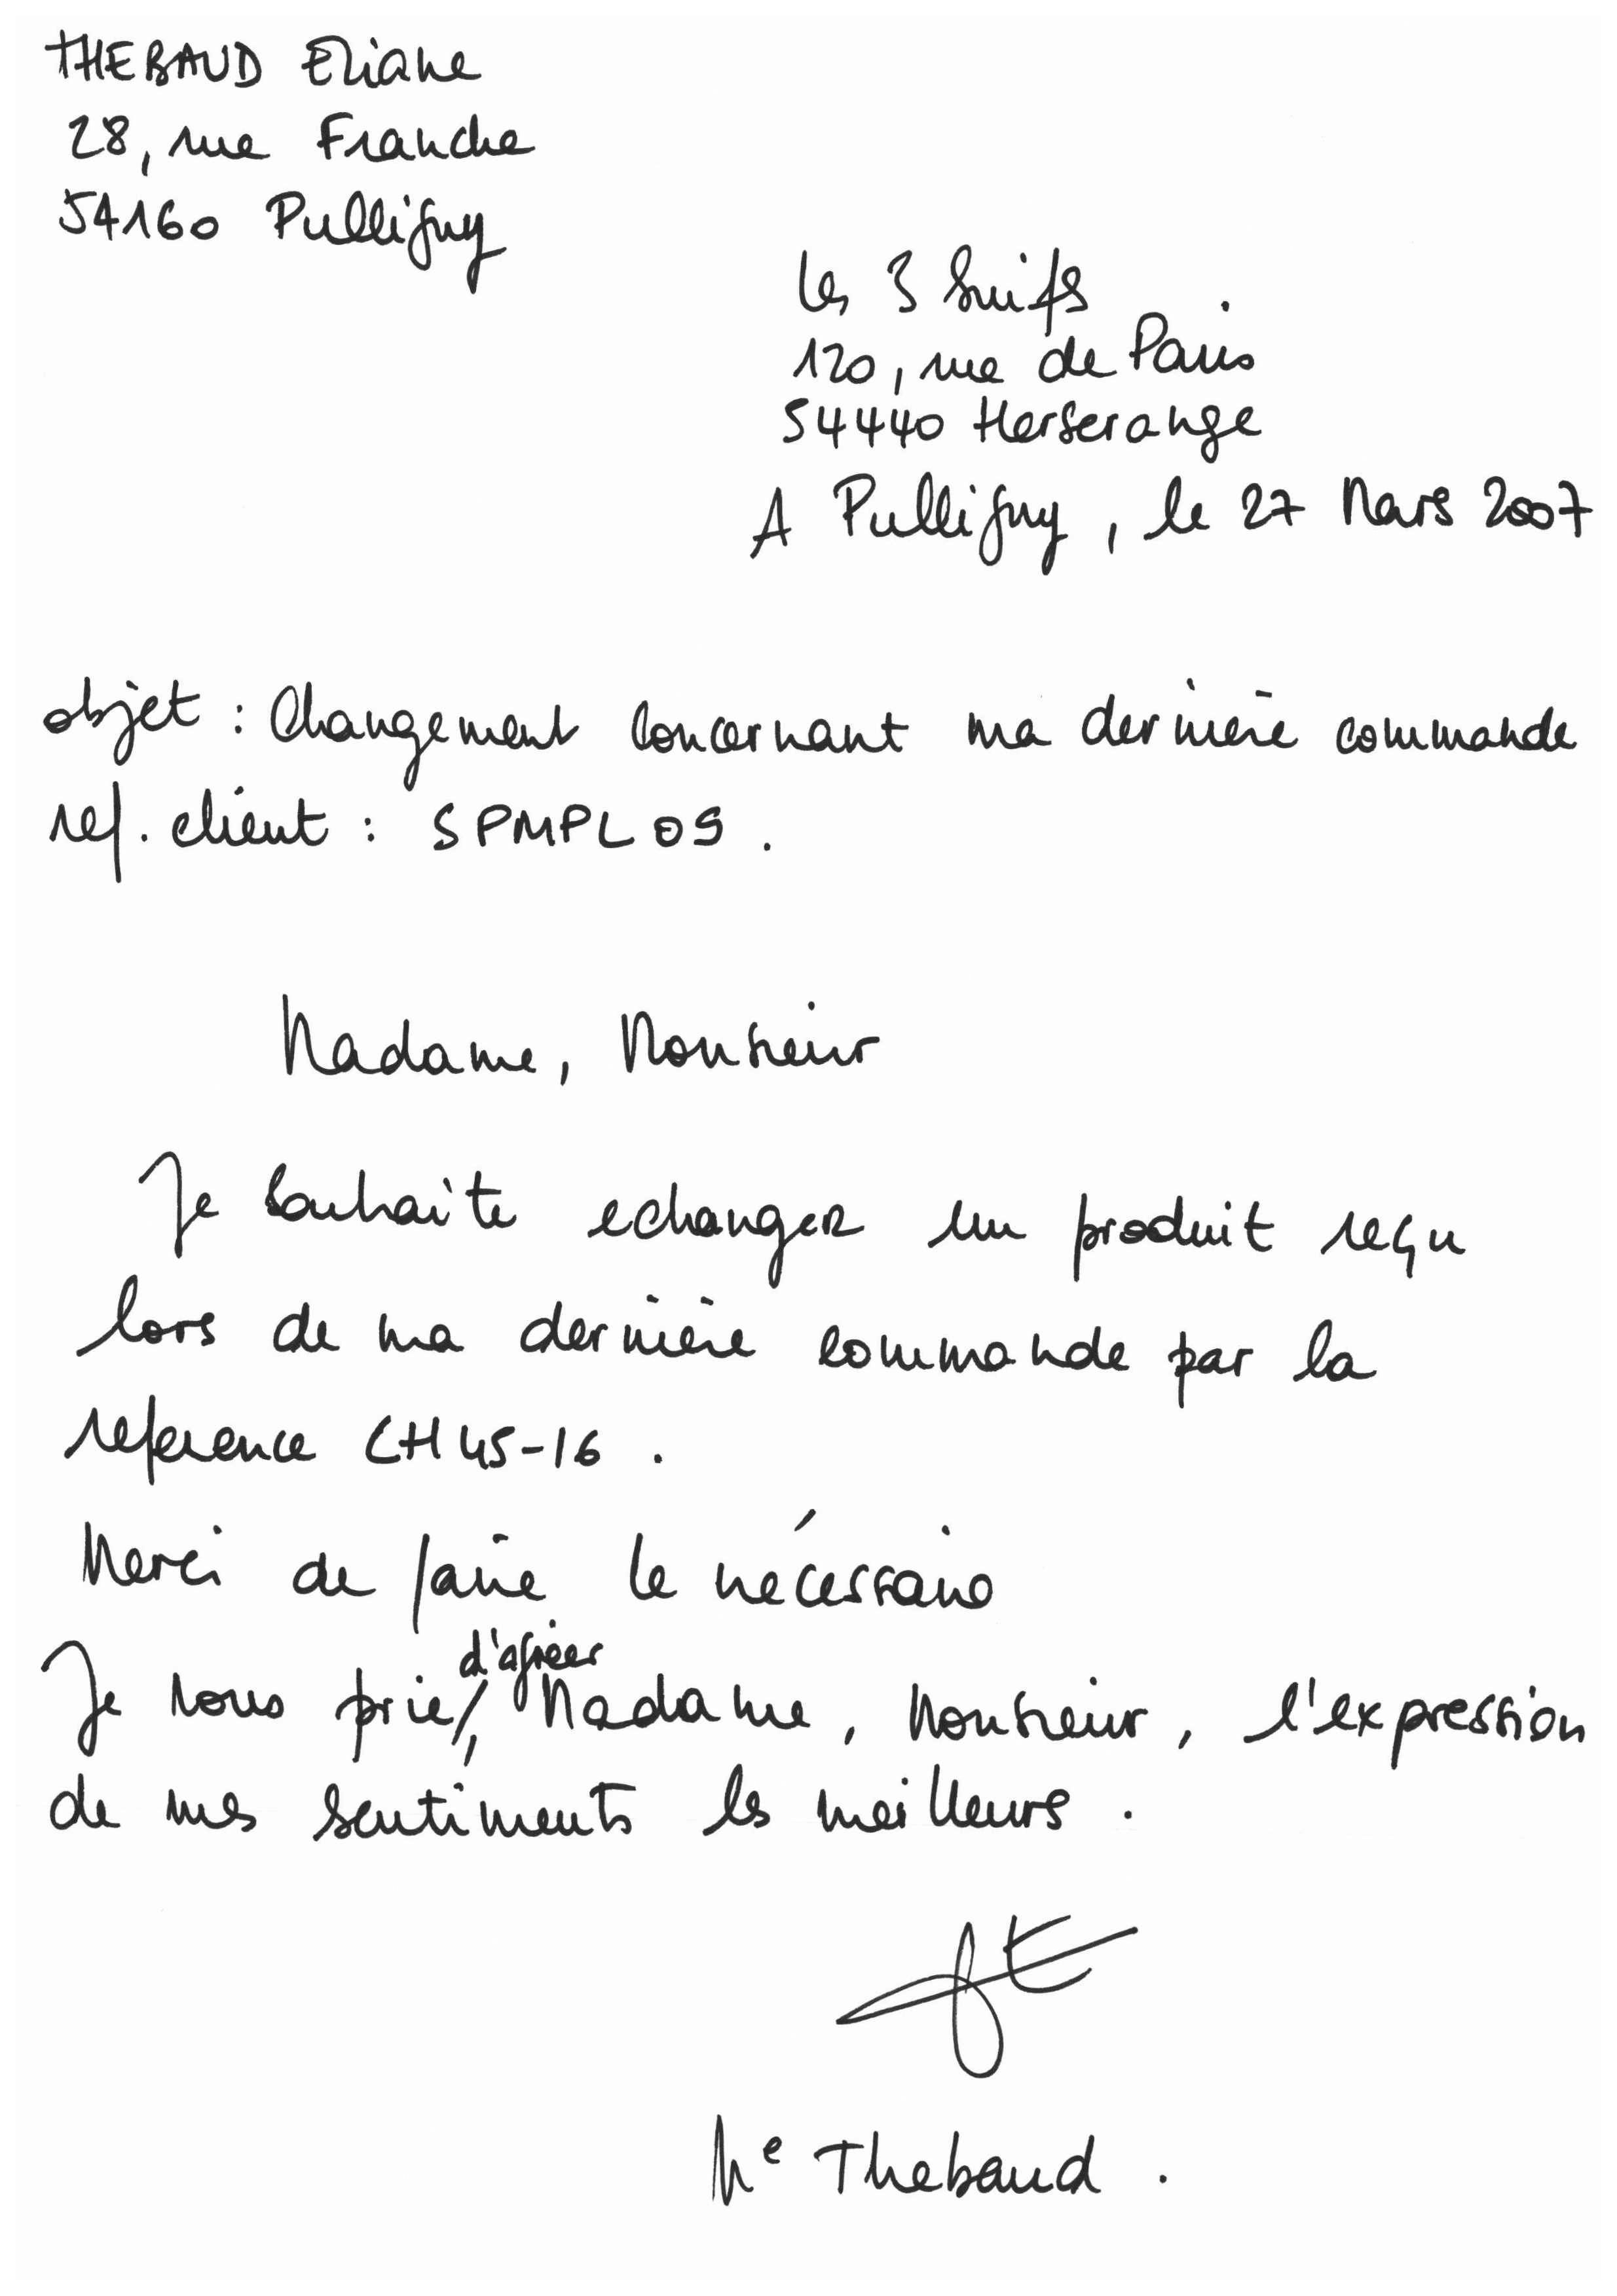 THEBAUD Eliane
28, rue Franche
54160 Pulligny
Les 3 Suifs
120, rue de Paris
54440 Herserange
A Pulligny, le 27 Mars 2007
objet : Changement concernant ma dernière commande
ref. client : SPMPLOS.
Madame, Monsieur
Je souhaite echanger un produit reçu
lors de ma dernière commande par la
reference CH45-16.
Merci de faire le nécessaire
Je vous prie, d'agréer Madame, Monsieur, l'expression
de mes sentiments les meilleurs.
Me Thebaud.